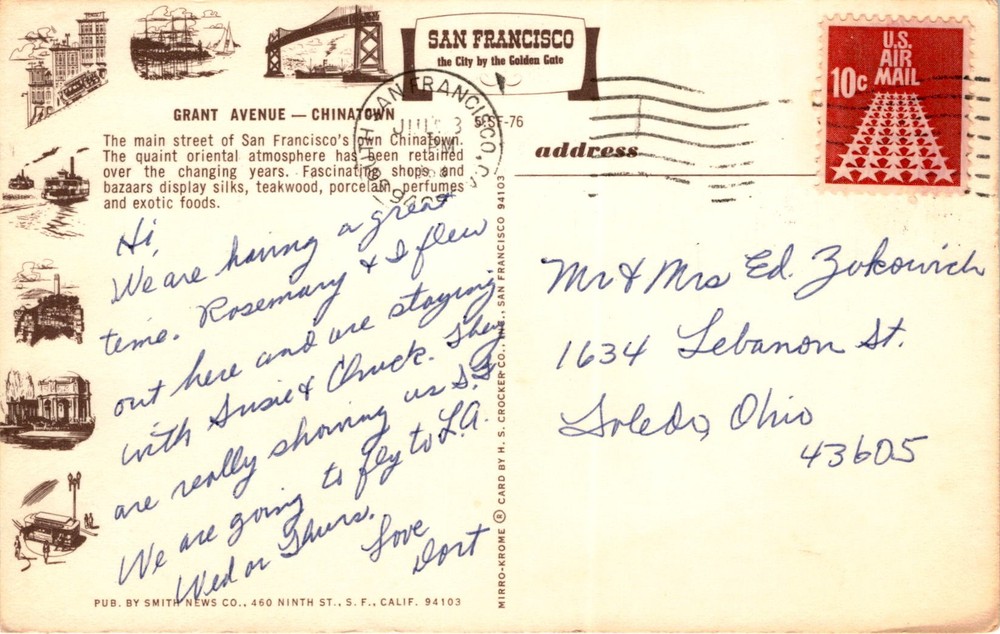 SAN FRANCISCO
the City by the Golden Gate
U.S.
AIR
MAIL
10c
GRANT AVENUE — CHINATOWN
SAN FRANCISCO, CA
The main street of San Francisco's own Chinatown.
The quaint oriental atmosphere has been retained
over the changing years. Fascinating shops and
bazaars display silks, teakwood, porcelain, perfumes
and exotic foods.
address
Hi,
We are having a great
time. Rosemary & I flew
out here and are staying
with Susie & Chuck. They
are really showing us S.F.
We are going to fly to L.A.
Wed or Thurs.
Love
Dort
Mr & Mrs Ed. Zukowich
1634 Lebanon St.
Toledo, Ohio
43605
MIRRO-KROME ® CARD BY H. S. CROCKER CO., INC., SAN FRANCISCO 94103
PUB. BY SMITH NEWS CO., 460 NINTH ST., S. F., CALIF. 94103